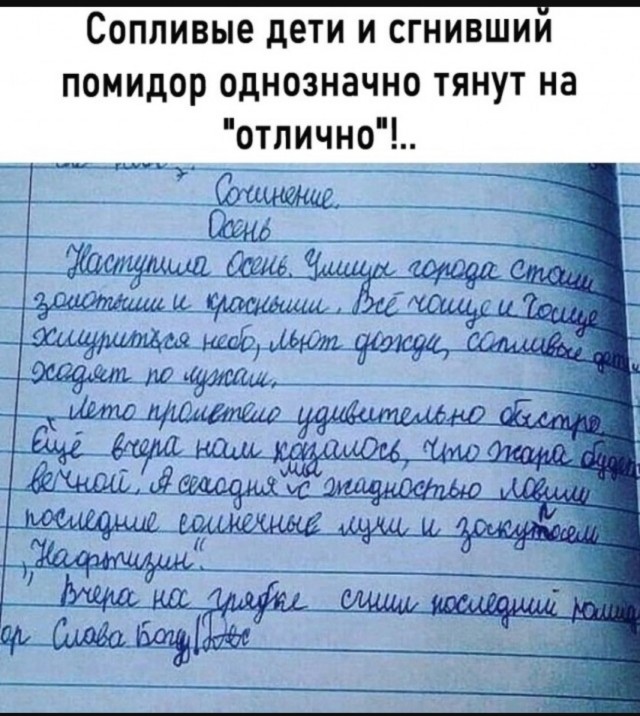 Сопливые дети и сгнивший
помидор однозначно тянут на
"отлично"!..
Сочинение.
Осень
Наступила Осень. Улицы города стали
золотыми и красными. Всё чаще и чаще
хмурится небо, льют дожди, сопливые дети
ходят по лужам.
Лето пролетело удивительно быстро.
Ещё вчера нам казалось, что жара будет
вечной. А сегодня мы с жадностью ловили
последние солнечные лучи и
„Нафтизин“.
Вчера на грядке сгнил последний помид
ор Слава Богу!